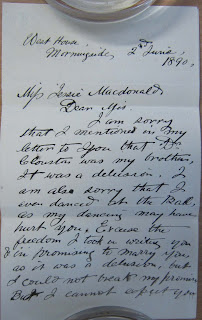 West House,
Morningside, 2nd June,
1890.
Miss Jessie Macdonald
Dear Mis.
I am sorry
that I mentioned in my
letter to You that Dr
Clouston was my brother,
It was a delusion. I
am also sorry that I
ever danced at the Ball
as my dancing may have
hurt You, Excuse the
freedom I took in writing you
& in promising to marry you
as it was a delusion, but
I could not break my promise
But I cannot expect you